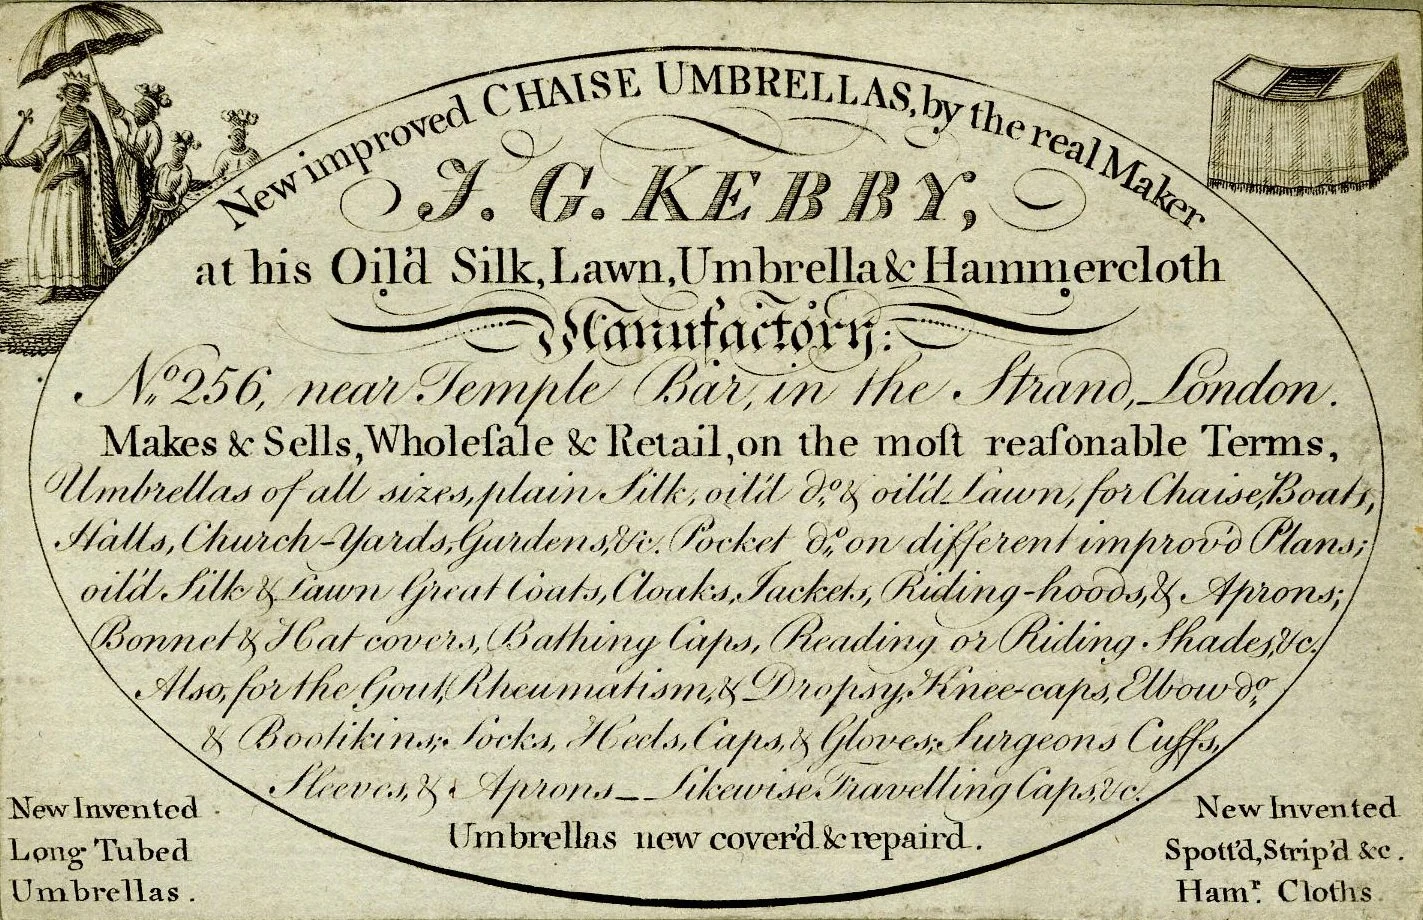 New improved CHAISE UMBRELLAS, by the real Maker
J. G. KEBBY,
at his Oil'd Silk, Lawn, Umbrella & Hammercloth
Manufactory:
No. 256, near Temple Bar, in the Strand, London.
Makes & Sells, Wholeſale & Retail, on the moſt reaſonable Terms,
Umbrellas of all sizes, plain Silk, oil'd do. & oil'd Lawn, for Chaise, Boats,
Halls, Church-Yards, Gardens, &c. Pocket do. on different improv'd Plans;
oil'd Silk & Lawn Great Coats, Cloaks, Jackets, Riding-hoods, & Aprons;
Bonnet & Hat covers, Bathing Caps, Reading or Riding Shades, &c.
Also, for the Gout, Rheumatism, & Dropsy, Knee-caps, Elbow do.
& Bootikins; Socks, Heels, Caps, & Gloves; Surgeons Cuffs,
Sleeves, & Aprons _ _ Likewise Travelling Caps, &c.
Umbrellas new cover'd & repaird.
New Invented
Long Tubed
Umbrellas.
New Invented
Spott'd, Strip'd &c.
Hamr. Cloths